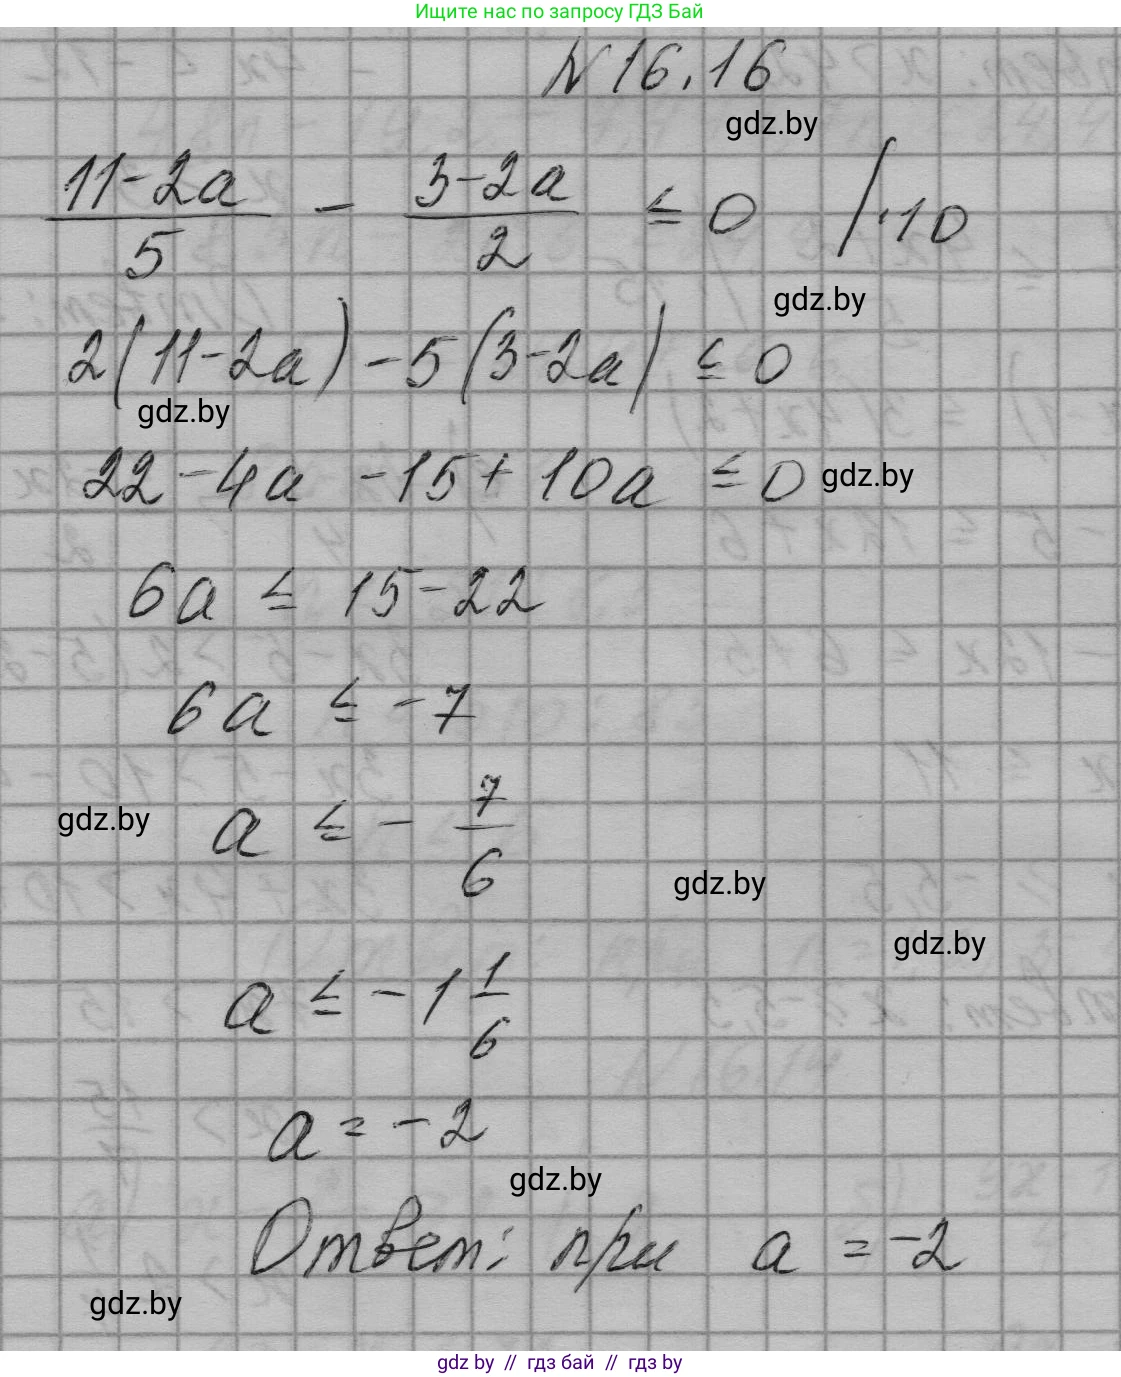 Ищите нас по запросу ГДЗ Бай
N 16.16
gdz.by
(11-2a)/5 - (3-2a)/2 ≤ 0 /·10
gdz.by
2(11-2a) - 5(3-2a) ≤ 0
gdz.by
22 - 4a - 15 + 10a ≤ 0
gdz.by
6a ≤ 15 - 22
6a ≤ -7
a ≤ - 7/6
gdz.by
gdz.by
gdz.by
a ≤ -1 1/6
a = -2
gdz.by
Ответ: при a = -2
gdz.by
gdz by // гдз бай // гдз by